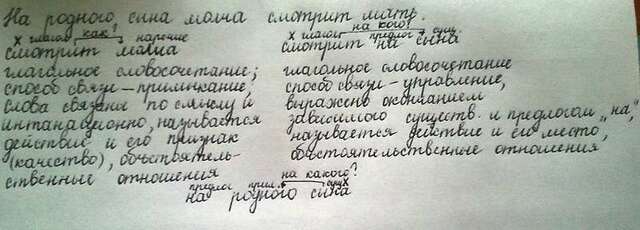 На родного сына молча смотрит мать.
х глагол как? наречие
смотрит молча
глагольное словосочетание;
способ связи – примыкание,
слова связаны по смыслу и
интанационно, называется
действие и его признак
(качество), обстоятель-
ственные отношения
х глагол на кого? предлог сущ.
смотрит на сына
глагольное словосочетание
способ связи – управление,
выражено окончанием
зависимого существ. и предлогом „на",
называется действие и его место,
обстоятельственные отношения
на какого?
предлог прил. сущ х
на родного сына